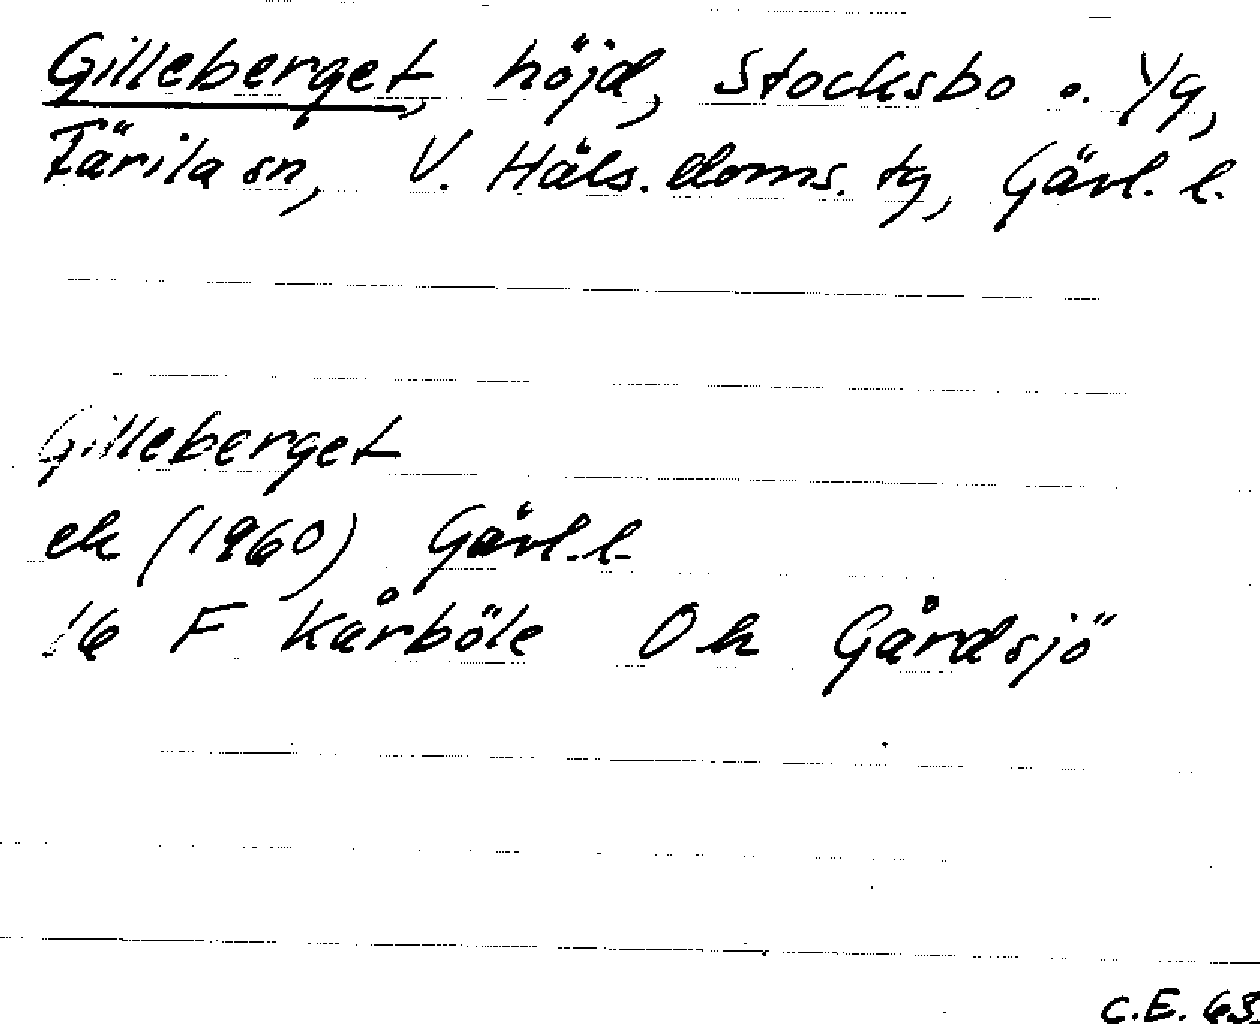 Gilleberget, höjd, Stocksbo o. Yg,
Färila sn, V. Häls. doms. tg, Gävl. l.
Gilleberget
ek (1960) Gävl. l.
16 F Kårböle Ok Gårdsjö
C.E. 63